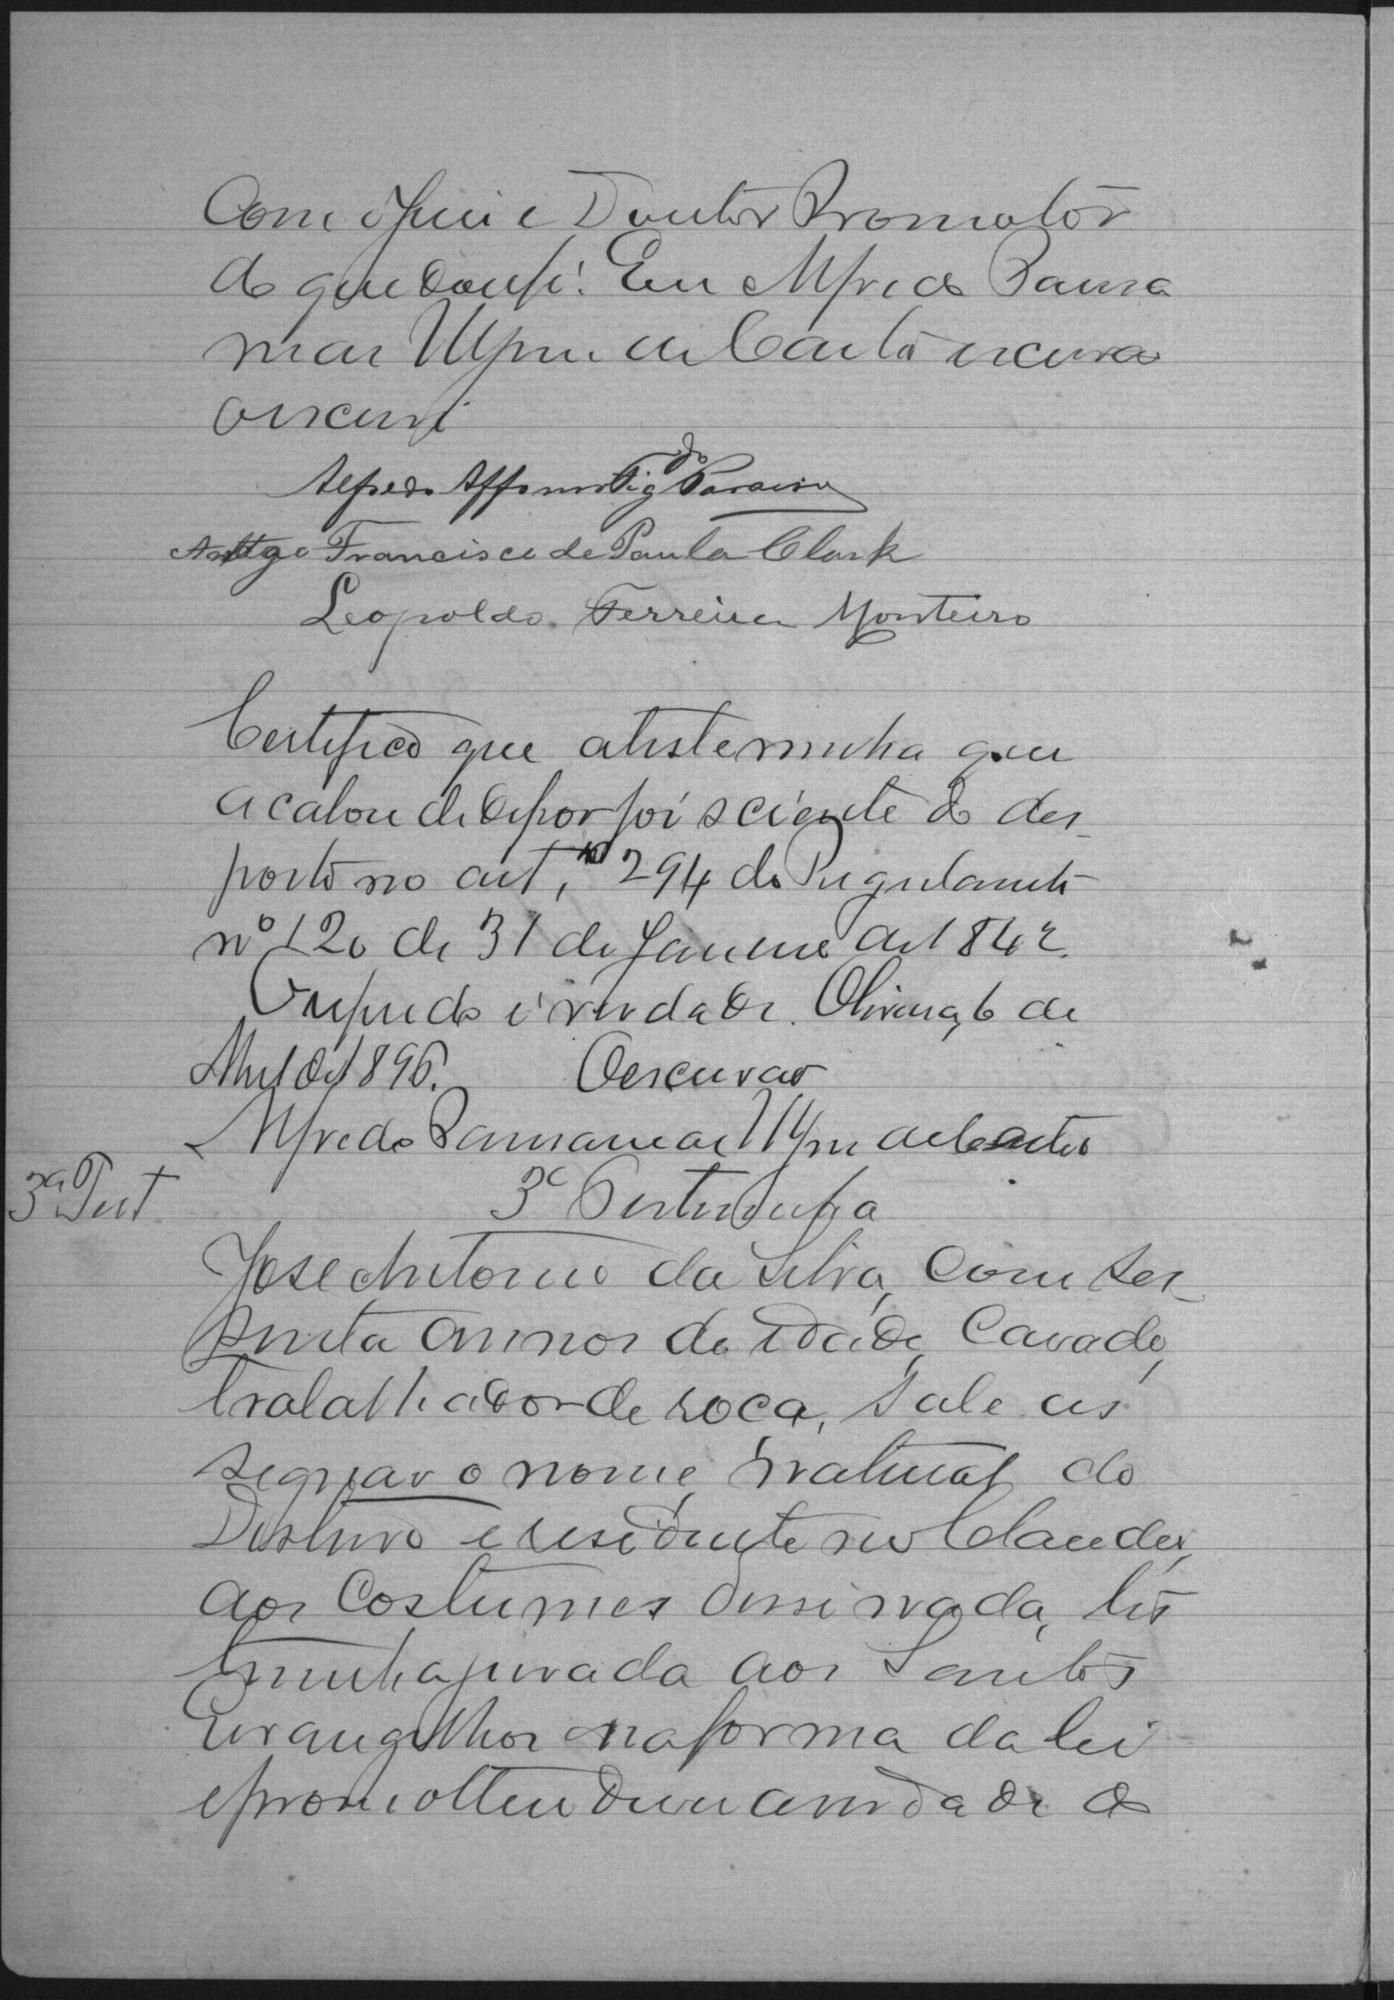 Com o Juiz e Doutor Promotor
do que dou fé. Eu Alfredo
de Castro escrivão
o escrevi
Alfredo Affonso do
Francisco de Paula Clark
Leopoldo Ferreira Monteiro
Certifico que a testemunha que
acabou de depor foi sciente do des
posto no art, 294 do Regulamento
nº 120 de 31 de Janeiro de 1842.
O referido é verdade. Oliveira, 6 de
Abril de 1896. O escrivão
Alfredo de Castro
3ª Test
3ª Testemunha
José Antonio da Silva, com ses
senta annos de idade, Casado,
trabalhador de roça, sabe as
signar o nome, natural do
Districto e residente no Claudio,
aos costumes disse nada, tes
temunha jurada aos Santos
Evangelhos na forma da lei
e prometteu dizer a verdade do